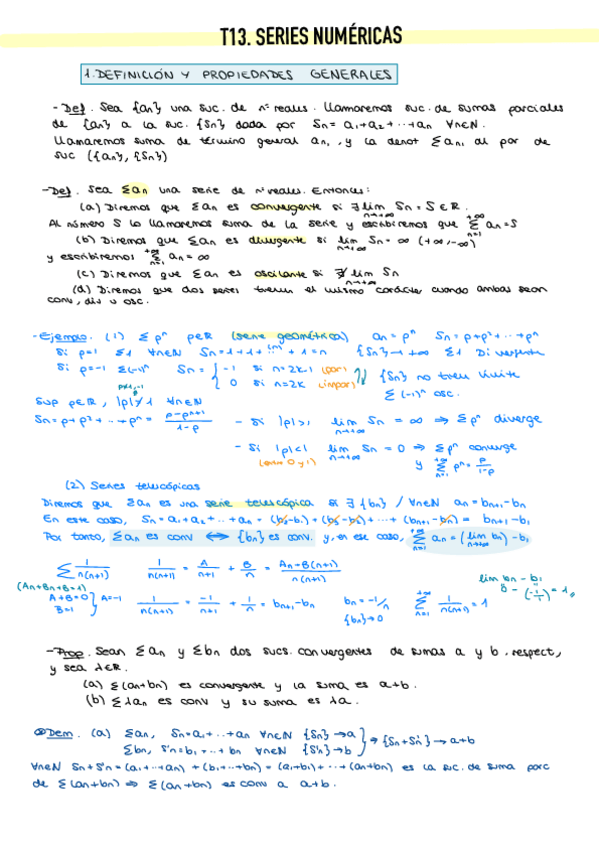 T13. SERIES NUMÉRICAS
1. DEFINICIÓN Y PROPIEDADES GENERALES
- Def. Sea {an} una suc. de nº reales. Llamaremos suc. de sumas parciales
de {an} a la suc. {Sn} dada por Sn = a1+a2+···+an ∀n∈N.
Llamaremos suma de término general an, y la denot Σan, al par de
suc ({an}, {Sn})
- Def. Sea Σan una serie de nº reales. Entonces:
(a) Diremos que Σan es convergente si ∃ lim n→+∞ Sn = S ∈ R.
Al número S lo llamaremos suma de la serie y escribiremos que Σ n=1 +∞ an = S
(b) Diremos que Σan es divergente si lim n→+∞ Sn = ∞ (+∞, -∞)
y escribiremos Σ n=1 +∞ an = ∞
(c) Diremos que Σan es oscilante si ∄ lim n→+∞ Sn
(d) Diremos que dos series tienen el mismo carácter cuando ambas sean
conv, div u osc.
- Ejemplo. (1) Σ pⁿ p∈R (serie geométrica) an = pⁿ Sn = p+p²+···+pⁿ
Si p=1 Σ1 ∀n∈N Sn = 1+1+ ... +1 = n {Sn}→+∞ Σ1 Divergente
Si p=-1 Σ(-1)ⁿ Sn = { -1 si n=2k-1 (par)
0 si n=2k (impar) {Sn} no tiene límite
Σ(-1)ⁿ osc.
p≠1,-1
Sup p∈R, |p|≠1 ∀n∈N
Sn = p+p²+···+pⁿ = (p-pⁿ⁺¹)/(1-p) - Si |p|>1 lim n→+∞ Sn = ∞ ⇒ Σpⁿ diverge
- Si |p|<1 lim n→+∞ Sn = 0 ⇒ Σpⁿ converge
(entre 0 y 1) y Σ n=1 +∞ pⁿ = p/(1-p)
(2) Series telescópicas
Diremos que Σan es una serie telescópica si ∃ {bn} / ∀n∈N an = bn+1 - bn
En este caso, Sn = a1+a2+···+an = (b2-b1) + (b3-b2) + ··· + (bn+1-bn) = bn+1 - b1
Por tanto, Σan es conv ⟺ {bn} es conv. y, en ese caso, Σ n=1 +∞ an = (lim n→+∞ bn) - b1
Σ 1/(n(n+1)) 1/(n(n+1)) = A/(n+1) + B/n = (An+B(n+1))/(n(n+1)) lim bn - b1
(An+Bn+B=1) 0 - (-1/1) = 1
A+B=0
B=1 } A=-1 1/(n(n+1)) = -1/(n+1) + 1/n = bn+1 - bn bn = -1/n Σ n=1 +∞ 1/(n(n+1)) = 1
{bn}→0
- Prop. Sean Σan y Σbn dos sucs. convergentes de sumas a y b, respect,
y sea λ∈R.
(a) Σ(an+bn) es convergente y la suma es a+b.
(b) Σλan es conv y su suma es λa.
Dem. (a) Σan, Sn = a1+···+an ∀n∈N {Sn}→a
Σbn, S'n = b1+···+bn ∀n∈N {S'n}→b } ⇒ {Sn+S'n}→a+b
∀n∈N Sn+S'n = (a1+···+an) + (b1+···+bn) = (a1+b1)+···+(an+bn) es la suc. de suma parc
de Σ(an+bn) ⇒ Σ(an+bn) es conv a a+b.